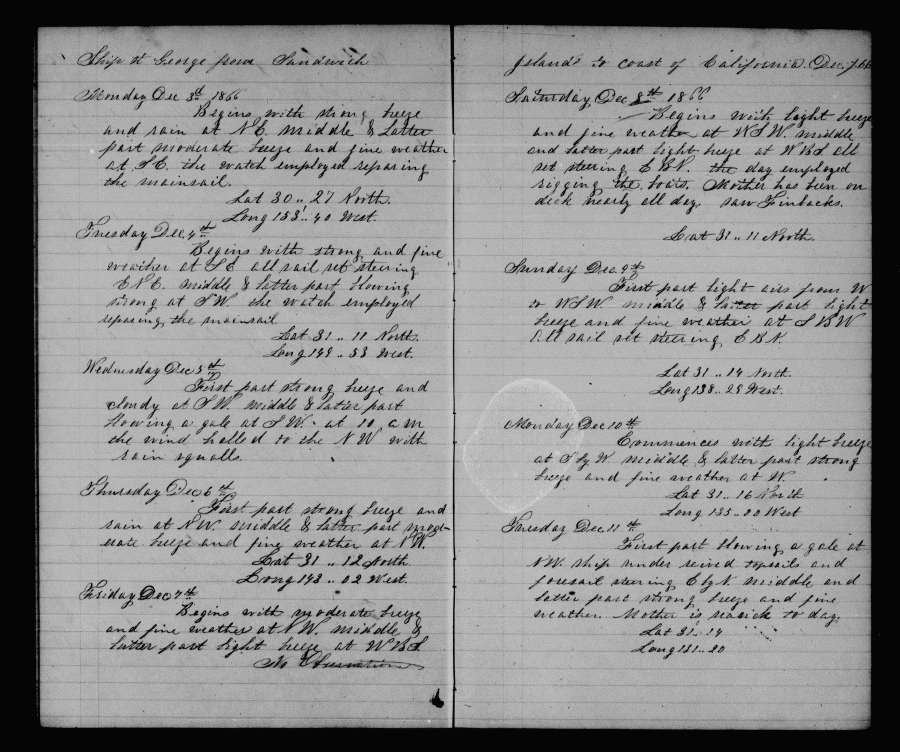 Ship St George from Sandwich
Monday Dec 3rd 1866
Begins with strong breeze
and rain at N.E. middle & latter
part moderate breeze and fine weather
at S.E. the watch employed reparing
the mainsail.
Lat 30 .. 27 North.
Long 153 .. 40 West.
Tuesday Dec 4th
Begins with strong and fine
weather at S.E all sail set steering
E N E. middle & latter part blowing
strong at S W. the watch employed
reparing the mainsail
Lat 31 .. 11 North.
Long 149 .. 53 West.
Wednesday Dec 5th
First part strong breeze and
cloudy at S W. middle & latter part
blowing a gale at S.W. at 10, a m
the wind halled to the N W with
rain squalls.
Thursday Dec 6th
First part strong breeze and
rain at N.W. middle & latter part mod-
erate breeze and fine weather at N W.
Lat 31 .. 12 North
Long 142 .. 02 West.
Friday Dec 7th
Begins with moderate breeze
and fine weather at N.W. middle &
latter part light breeze at W B S
No Observation
Islands to coast of California. Dec, 7. 66
Saturday Dec 8th 1866
Begins with light breeze
and fine weather at W S W. middle
and latter part light breeze at W B S all
set steering E B N. the day employed
rigging the boats. Mother has been on
deck nearly all day. saw Finbacks.
Lat 31 .. 11 North.
Sunday Dec 9th
First part light airs from W
to W S W. middle & latter part light
breeze and fine weather at S B W
All sail set steering E B N.
Lat 31 .. 14 North.
Long 138 .. 28 West.
Monday Dec 10th
Commences with light breeze
at S by W. middle & latter part strong
breeze and fine weather at W.
Lat 31 .. 16 North
Long 135 .. 20 West
Tuesday Dec 11th
First part blowing a gale at
N.W. ship under reived topsails and
foresail steering E by N middle and
latter part strong breeze and fine
weather. Mother is seasick to day.
Lat 31 .. 14
Long 131 .. 20